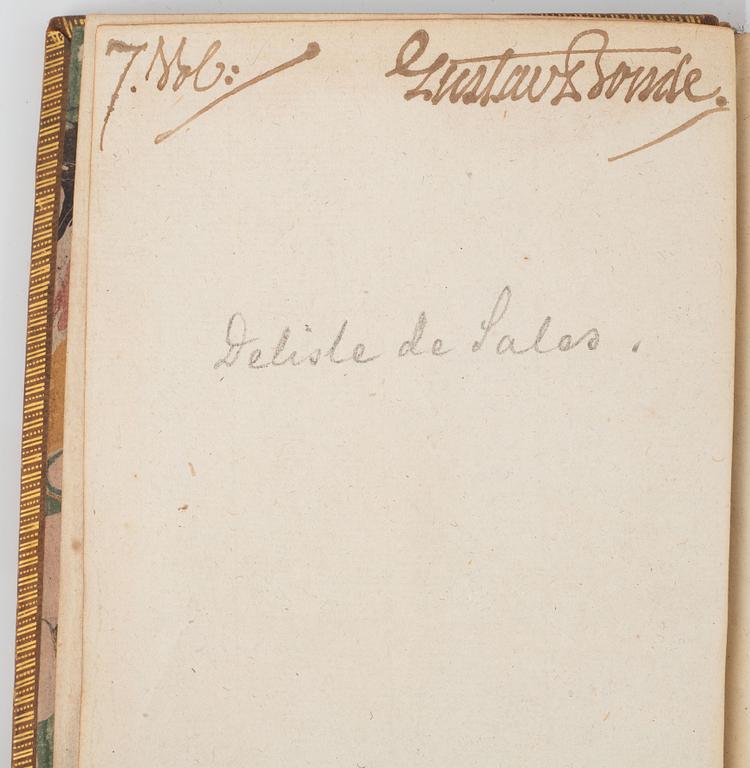 7. Vol: Gustav Bonde.
Delisle de Sales.